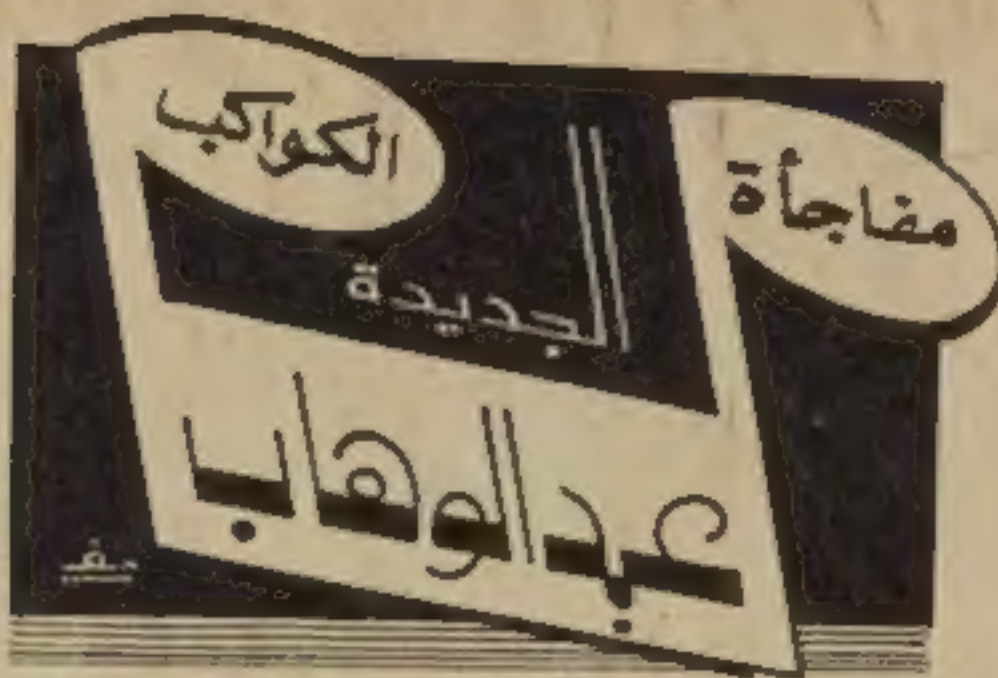 مفاجأة
الكواكب
الجديدة
عبد الوهاب